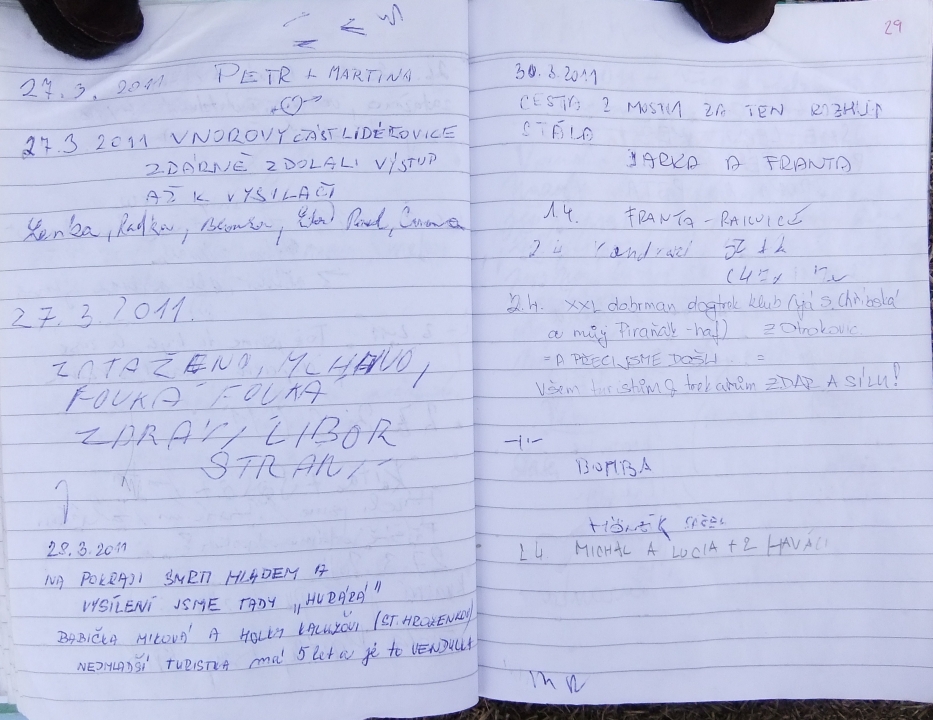 27.3. 2011 PETR + MARTINA
27.3 2011 VNOROVY ČÁST LIDÉŘOVICE
ZDÁRNĚ ZDOLALI VÝSTUP
AŽ K VYSÍLAČI
Lenka, Radka,
27.3.2011.
ZATAŽENO, MLHAVO,
FOUKÁ FOUKÁ
ZDRAVÍ LIBOR
28.3.2011
NA POKRAJI SMRTI HLADEM A
VYSÍLENÍ JSME TADY „HURÁRÁ"
BABIČKA MIKOVÁ A HOLKY (ST. HROZENKOV)
NEJMLADŠÍ TURISTKA má 5 let a je to VENDULKA
29
30.3.2011
CESTA Z MOSTU ZA TEN ROZHLED
STÁLA
JARKA A FRANTA
1.4. FRANTA - RAKVICE
2.4.
2.4. XXL dobrman dogtrek klub (já s Chřibská
a můj Piraňák - haf) z Otrokovic
= A PŘECI JSME DOŠLI =
Všem turistům & trekařům ZDAR A SÍLU!
-||-
BOMBA
2.4. MICHAL A LUCIA + 2 HAVÁCI